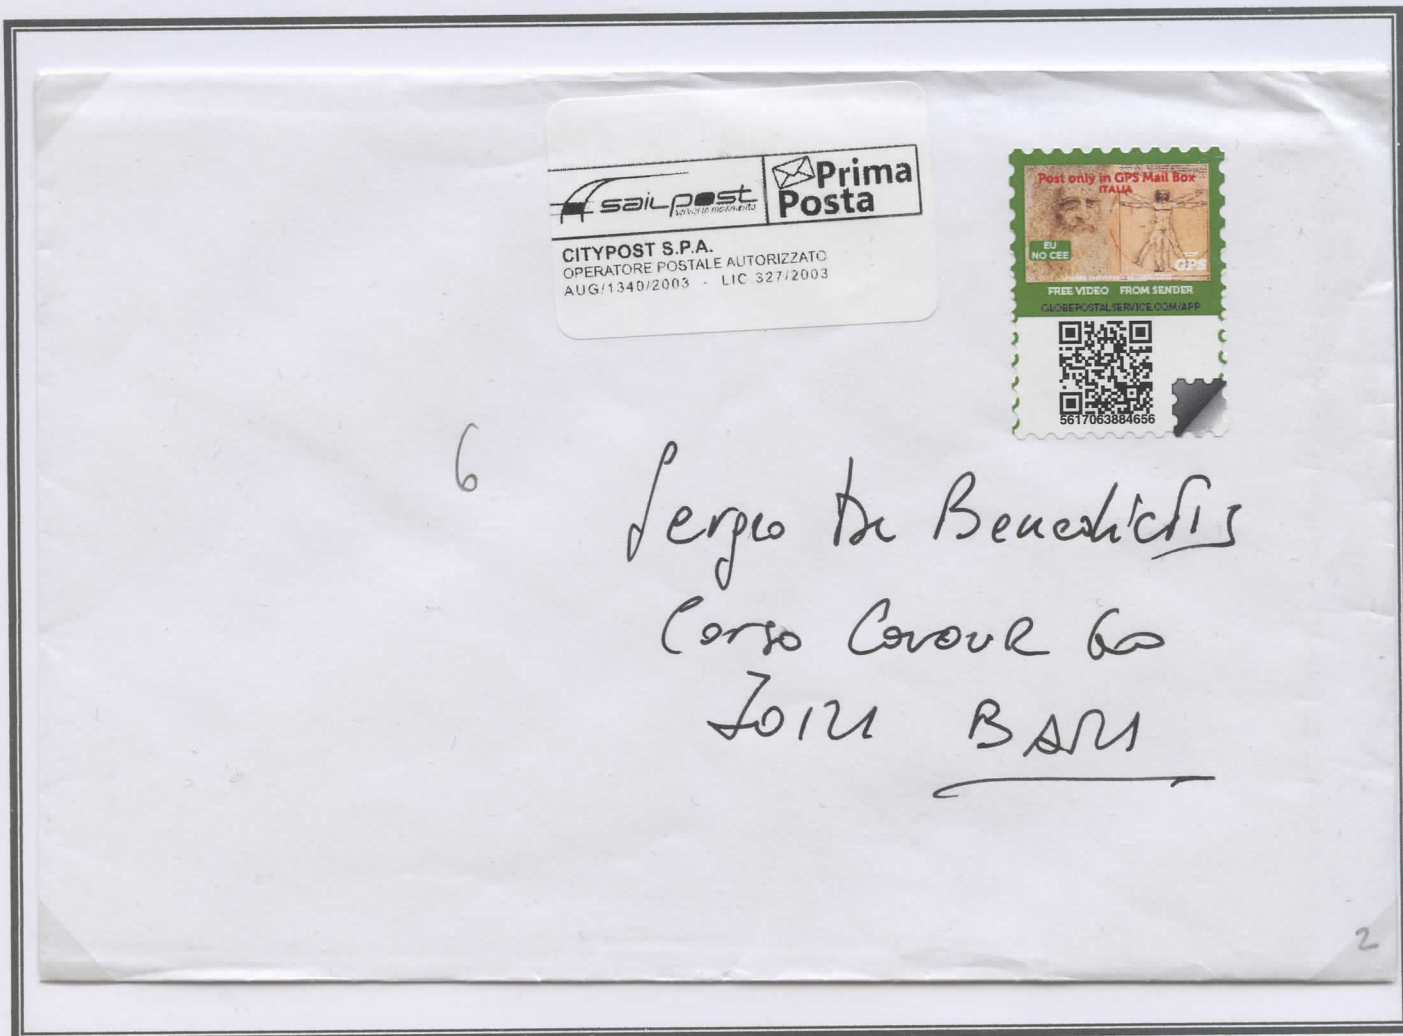 sailpost
servizi in movimento
Prima
Posta
CITYPOST S.P.A.
OPERATORE POSTALE AUTORIZZATO
AUG/1340/2003 - LIC 327/2003
Post only in GPS Mail Box
ITALIA
EU
NO CEE
GPS
FREE VIDEO FROM SENDER
GLOBEPOSTALSERVICE.COM/APP
5617063884656
6
Sergio De Benedictis
Corso Cavour 60
70121 BARI
2